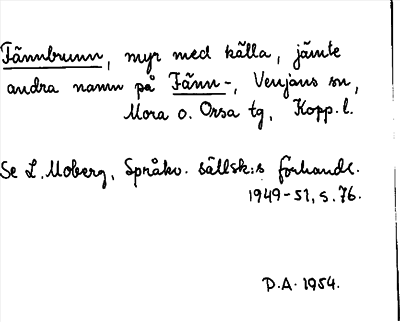 Fännbrunn, myr med källa, jämte
andra namn på Fänn-, Venjans sn,
Mora o. Orsa tg, Kopp. l.
Se L. Moberg, Språkv. sällsk:s förhandl.
1949-51, s. 76.
D.A. 1954.